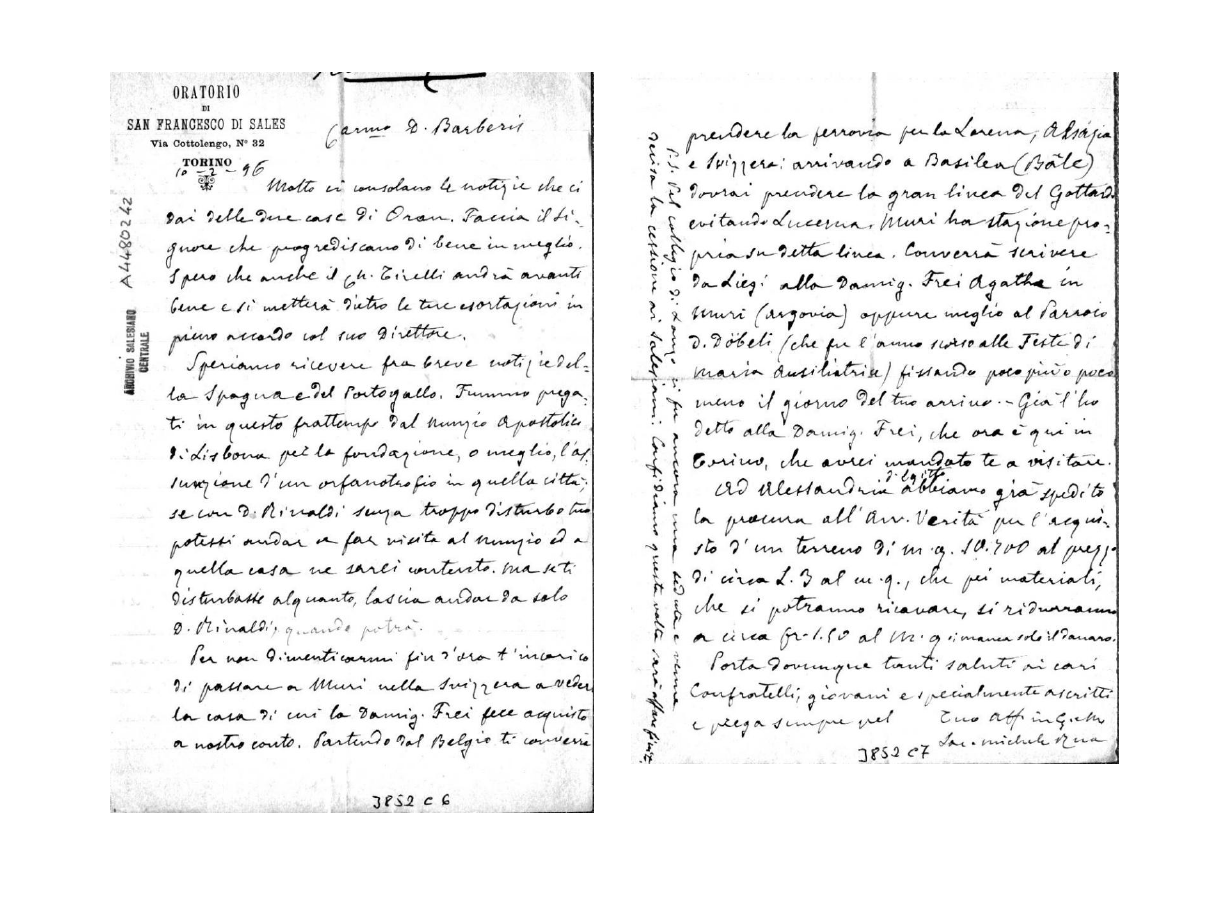 ORATORIO
DI
SAN FRANCESCO DI SALES
Via Cottolengo, N° 32
TORINO
10-2-96
Carmo D. Barberis
Molto ci consolano le notizie che ci
dai delle due case di Oran. Faccia il Si-
gnore che progrediscano di bene in meglio.
Spero che anche il Ch. Tirelli andrà avanti
bene e si metterà dietro le tue esortazioni in
pieno accordo col suo Direttore.
Speriamo ricevere fra breve notizie del-
la Spagna e del Portogallo. Fummo prega-
ti in questo frattempo dal Nunzio Apostolico
di Lisbona per la fondazione, o meglio, l'as-
sunzione d'un orfanotrofio in quella città;
se con D. Rinaldi senza troppo disturbo tuo
potessi andar a far visita al Nunzio ed a
quella casa ne sarei contento. Ma se ti
disturbasse alquanto, lascia andar da solo
D. Rinaldi, quando potrà.
Per non dimenticarmi fin d'ora t'incarico
di passare a Muri nella Svizzera a veder
la casa di cui la Damig. Frei fece acquisto
a nostro conto. Partendo dal Belgio ti converrà
3852 C 6
A4480242
ARCHIVIO SALESIANO
CENTRALE
prendere la ferrovia per la Lorena, Alsazia
e Svizzera: arrivando a Basilea (Bâle)
dovrai prendere la gran linea del Gottardo
evitando Lucerna. Muri ha stazione pro-
pria su detta linea. Converrà scrivere
da Liegi alla Damig. Frei Agatha in
Muri (Argovia) oppure meglio al Parroco
D. Döbeli (che fu l'anno scorso alle Feste di
Maria Ausiliatrice) fissando poco più o poco
meno il giorno del tuo arrivo. - Già l'ho
detto alla Damig. Frei, che ora è qui in
Torino, che avrei mandato te a visitare.
Ad Alessandria d'Egitto abbiamo già spedito
la procura all'Avv. Verità per l'acqui-
sto d'un terreno di m.q. 10.700 al prezzo
di circa L. 3 al m.q., che pei materiali,
che si potranno ricavare, si ridurranno
a circa fr. 1.50 al m.q si manca solo il danaro.
Porta dovunque tanti saluti ai cari
Confratelli, giovani e specialmente ascritti
e prega sempre pel
Tuo Aff in G. e M.
Sac. Michele Rua
P.S. Pel collegio di Lanzo si fu ancora una seduta e venne
decisa la cessione ai Salesiani. Confidiamo questa volta sarà affare finito
3852 C7